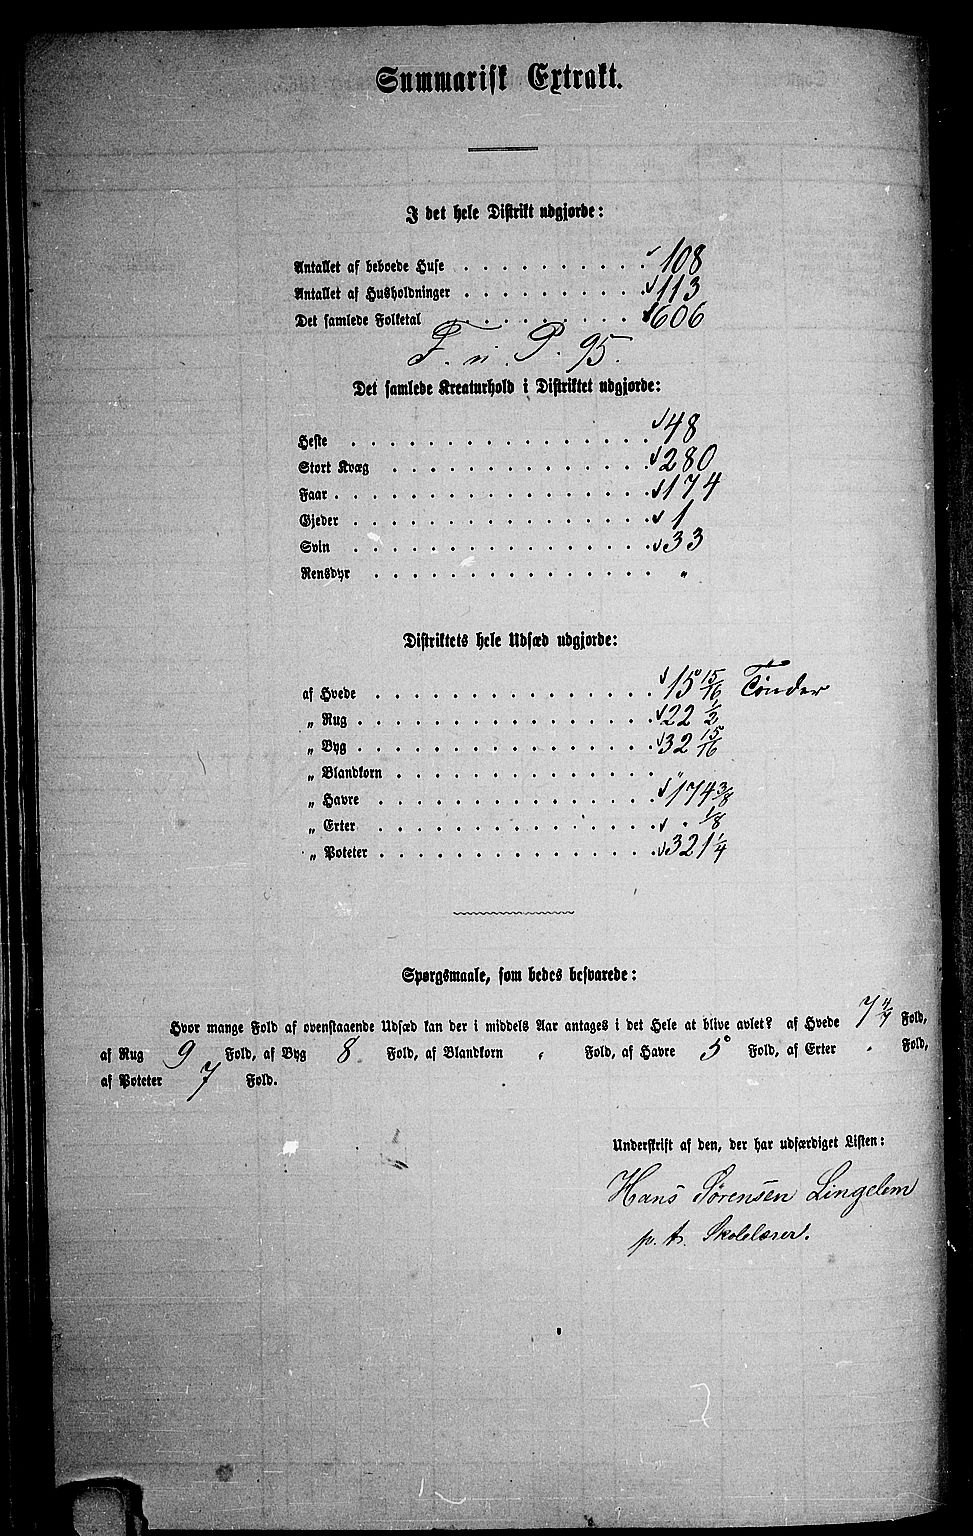 Summarisk Extrakt.
I det hele Distrikt udgjorde:
Antallet af beboede Huse . . . . . . . . . . 108
Antallet af Husholdninger . . . . . . . . . . 113
Det samlede Folketal . . . . . . . . . . 606
F. n. P. 95.
Det samlede Kreaturhold i Distriktet udgjorde:
Heste . . . . . . . . . . . . . . . . 48
Stort Kvæg . . . . . . . . . . . . . . 280
Faar . . . . . . . . . . . . . . . . . 174
Gjeder . . . . . . . . . . . . . . . . 1
Svin . . . . . . . . . . . . . . . . 33
Rensdyr . . . . . . . . . . . . . . . "
Distriktets hele Udsæd udgjorde:
af Hvede . . . . . . . . . . . . . . . 15 15/16 Tønder
„ Rug . . . . . . . . . . . . . . . . 22 1/2
„ Byg . . . . . . . . . . . . . . . . 32 15/16
„ Blandkorn . . . . . . . . . . . . . . "
„ Havre . . . . . . . . . . . . . . . 174 3/8
„ Erter . . . . . . . . . . . . . . . 1/8
„ Poteter . . . . . . . . . . . . . . 321 1/4
Spørgsmaale, som bedes besvarede:
Hvor mange Fold af ovenstaaende Udsæd kan der i middels Aar antages i det Hele at blive avlet? af Hvede 7 Fold,
af Rug 9 Fold, af Byg 8 Fold, af Blandkorn " Fold, af Havre 5 Fold, af Erter " Fold,
af Poteter 7 Fold.
Underskrift af den, der har udfærdiget Listen:
Hans Sørensen Lingelem
p. t. Skolelærer.